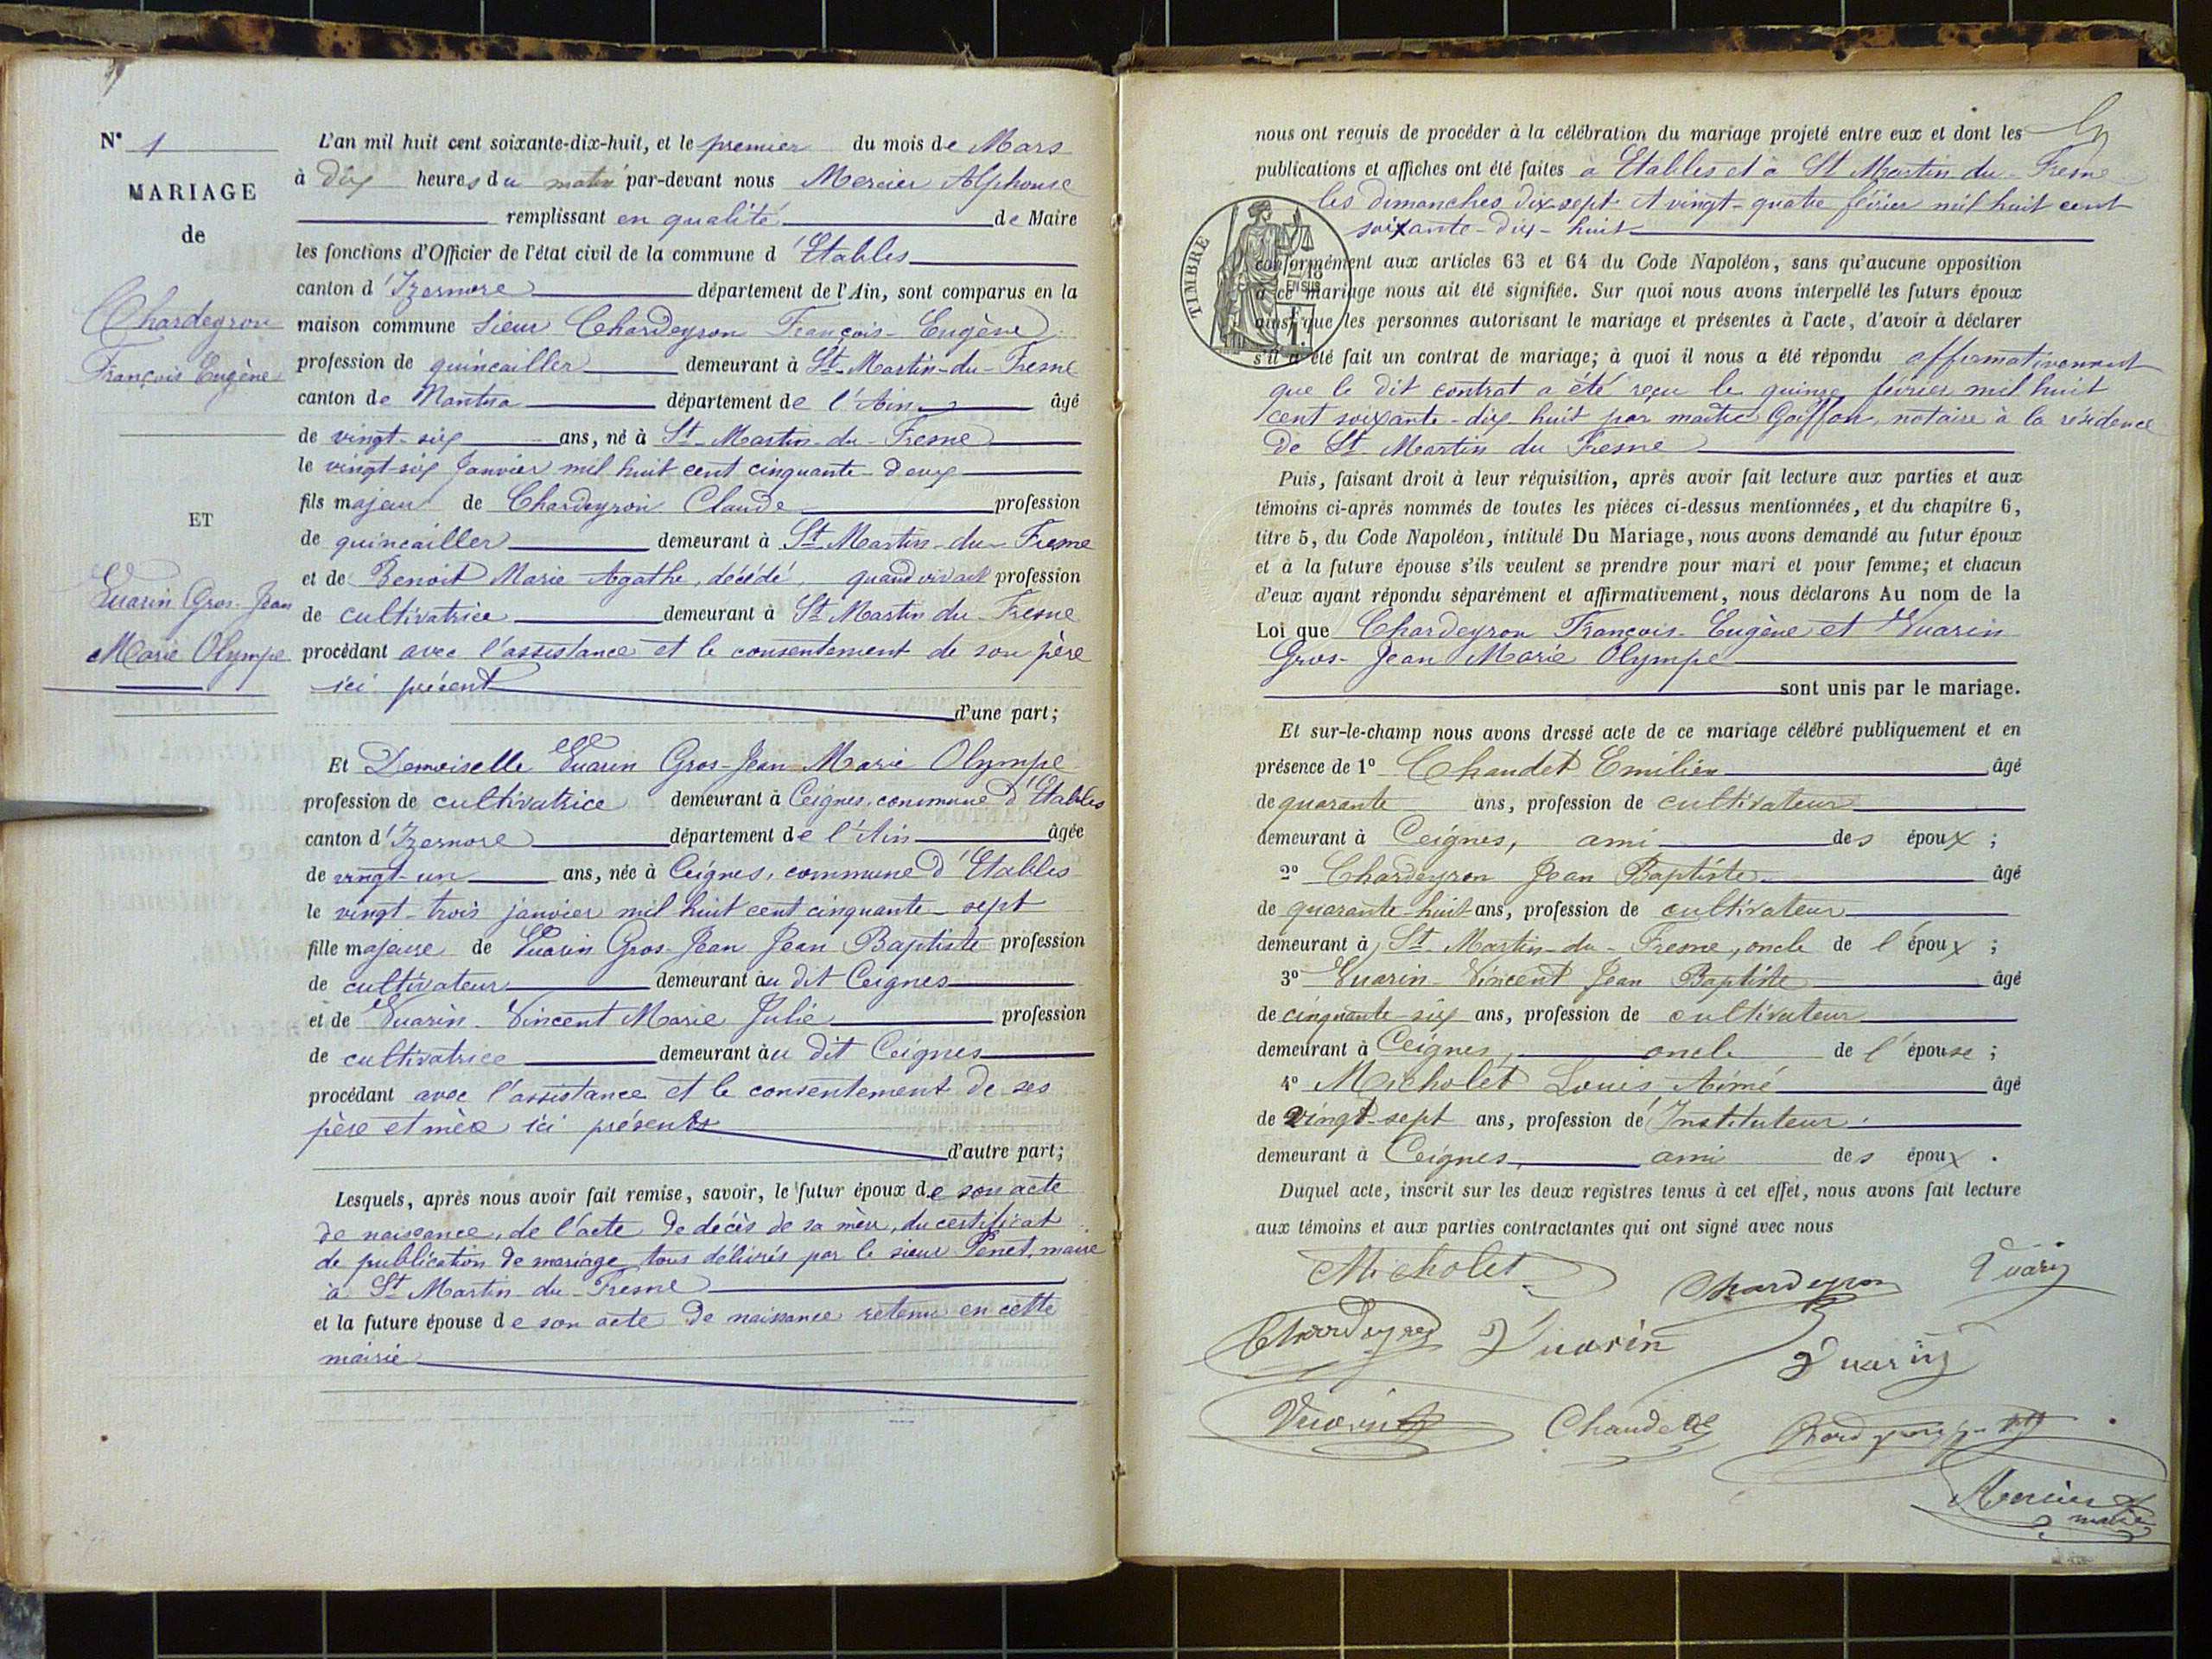 N° 1
MARIAGE
de
Chardeyron
François Eugène
ET
Vuarin Gros-Jean
Marie Olympe
L'an mil huit cent soixante-dix-huit, et le premier du mois de Mars
à dix heures du matin par-devant nous Mercier Alphonse
remplissant en qualité de Maire
les fonctions d'Officier de l'état civil de la commune d'Etables
canton d'Izernore département de l'Ain, sont comparus en la
maison commune Sieur Chardeyron François-Eugène
profession de quincailler demeurant à St-Martin-du-Fresne
canton de Nantua département de l'Ain âgé
de vingt-six ans, né à St-Martin-du-Fresne
le vingt-six Janvier mil huit cent cinquante-deux
fils majeur de Chardeyron Claude profession
de quincailler demeurant à St-Martin-du-Fresne
et de Benoit Marie Agathe, décédé, quand vivait profession
de cultivatrice demeurant à St Martin du Fresne
procédant avec l'assistance et le consentement de son père
ici présent
d'une part;
Et Demoiselle Vuarin Gros-Jean Marie Olympe
profession de cultivatrice demeurant à Ceignes, commune d'Etables
canton d'Izernore département de l'Ain âgée
de vingt-un ans, née à Ceignes, commune d'Etables
le vingt-trois janvier mil huit cent cinquante-sept
fille majeure de Vuarin Gros-Jean Jean Baptiste profession
de cultivateur demeurant au dit Ceignes
et de Vuarin-Vincent Marie Julie profession
de cultivatrice demeurant au dit Ceignes
procédant avec l'assistance et le consentement de ses
père et mère ici présents
d'autre part;
Lesquels, après nous avoir fait remise, savoir, le futur époux de son acte
de naissance, de l'acte de décès de sa mère, du certificat
de publication de mariage tous délivrés par le sieur Penet, maire
à St Martin-du-Fresne
et la future épouse de son acte de naissance retenu en cette
mairie
nous ont requis de procéder à la célébration du mariage projeté entre eux et dont les
publications et affiches ont été faites à Etables et à St Martin du-Fresne
les dimanches dix-sept et vingt-quatre février mil huit cent
soixante-dix-huit
TIMBRE
EN SUS
conformément aux articles 63 et 64 du Code Napoléon, sans qu'aucune opposition
à ce mariage nous ait été signifiée. Sur quoi nous avons interpellé les futurs époux
ainsi que les personnes autorisant le mariage et présentes à l'acte, d'avoir à déclarer
s'il a été fait un contrat de mariage; à quoi il nous a été répondu affirmativement
que le dit contrat a été reçu le quinze février mil huit
cent soixante-dix-huit par maître Goiffon, notaire à la résidence
de St-Martin du Fresne
Puis, faisant droit à leur réquisition, après avoir fait lecture aux parties et aux
témoins ci-après nommés de toutes les pièces ci-dessus mentionnées, et du chapitre 6,
titre 5, du Code Napoléon, intitulé Du Mariage, nous avons demandé au futur époux
et à la future épouse s'ils veulent se prendre pour mari et pour femme; et chacun
d'eux ayant répondu séparément et affirmativement, nous déclarons Au nom de la
Loi que Chardeyron François-Eugène et Vuarin
Gros-Jean Marie Olympe
sont unis par le mariage.
Et sur-le-champ nous avons dressé acte de ce mariage célébré publiquement et en
présence de 1° Chaudet Emilien âgé
de quarante ans, profession de cultivateur
demeurant à Ceignes, ami des époux ;
2° Chardeyron Jean Baptiste âgé
de quarante-huit ans, profession de cultivateur
demeurant à St-Martin-du-Fresne, oncle de l'époux ;
3° Vuarin-Vincent Jean Baptiste âgé
de cinquante-six ans, profession de cultivateur
demeurant à Ceignes, oncle de l'épouse ;
4° Micholet Louis Aimé âgé
de vingt-sept ans, profession de Instituteur
demeurant à Ceignes, ami des époux .
Duquel acte, inscrit sur les deux registres tenus à cet effet, nous avons fait lecture
aux témoins et aux parties contractantes qui ont signé avec nous
Micholet Chardeyron Vuarin
Chardeyron Vuarin Vuarin
Vuarin Chaudet
Mercier
maire